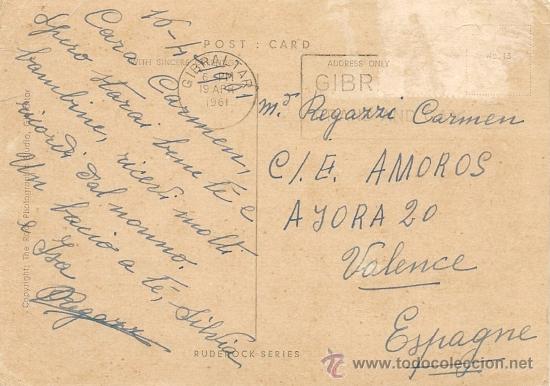 POST : CARD
WITH SINCERE
GIBRALTAR
6 PM
19 APR
1961
ADDRESS ONLY
GIBR
No. 13
16-4-61
Cara Carmen,
Spero starai bene te e
bambine, ricevi molti
ricordi dal nonno.
Un bacio a te, Silvia
e Isa
Regazzi
M.d Regazzi Carmen
C/E. AMOROS
AJORA 20
Valence
Espagne
Copyright: The Rock Photographic Studio, Gibraltar
RUDEROCK-SERIES
todocoleccion
www.todocoleccion.net